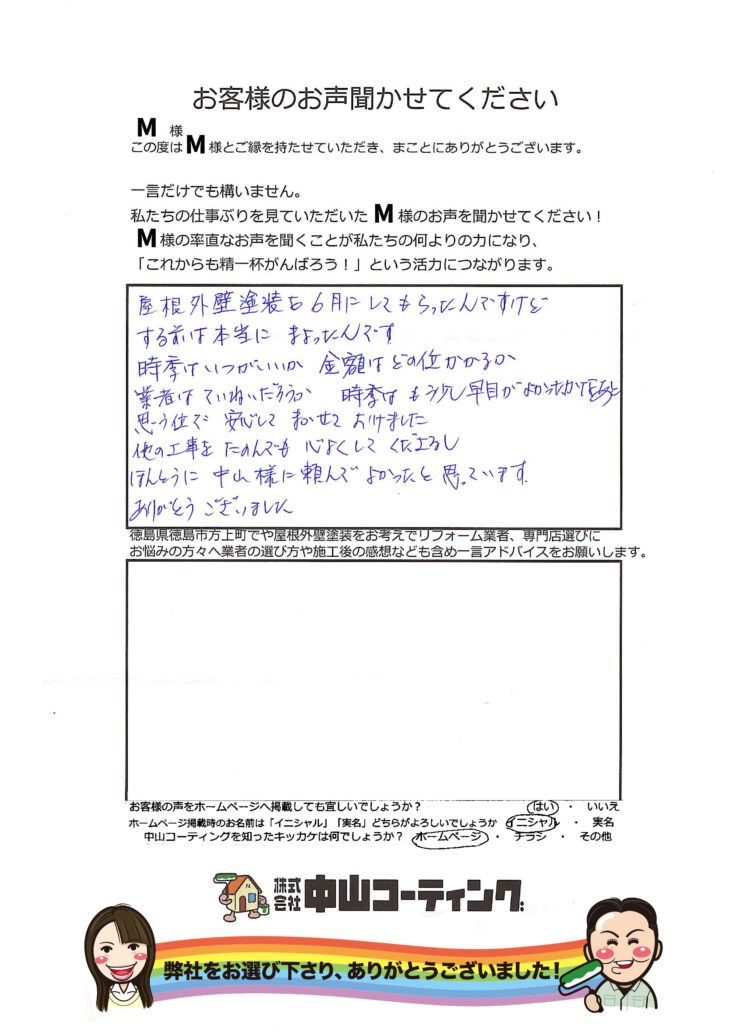 お客様のお声聞かせてください
M 様
この度は M 様とご縁を持たせていただき、まことにありがとうございます。
一言だけでも構いません。
私たちの仕事ぶりを見ていただいた M 様のお声を聞かせてください！
M 様の率直なお声を聞くことが私たちの何よりの力になり、
「これからも精一杯がんばろう！」という活力につながります。
屋根外壁塗装を6月にしてもらったんですけど
する前は本当に まよったんです
時季はいつがいいか 金額はどの位かかるか
業者はていねいだろうか 時季はもう少し早目がよかったかな
思う位で 安心して まかせて おけました
他の工事を たのんでも 心よくして くださるし
ほんとうに 中山様に頼んで よかったと 思っています.
ありがとう ございました
徳島県徳島市方上町でや屋根外壁塗装をお考えでリフォーム業者、専門店選びに
お悩みの方々へ業者の選び方や施工後の感想なども含め一言アドバイスをお願いします。
お客様の声をホームページへ掲載しても宜しいでしょうか？ はい ・ いいえ
ホームページ掲載時のお名前は「イニシャル」「実名」どちらがよろしいでしょうか イニシャル ・ 実名
中山コーティングを知ったキッカケは何でしょうか？ ホームページ ・ チラシ ・ その他
株式会社 中山コーティング
弊社をお選び下さり、ありがとうございました！